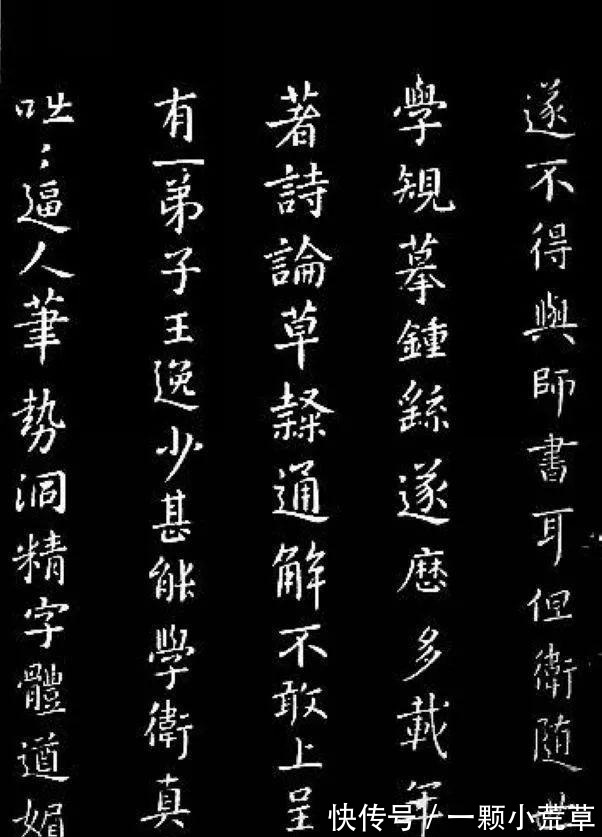 遂不得與師書耳但衛隨世
學規摹鍾繇遂歷多載年
著詩論草隸通解不敢上呈
有一弟子王逸少甚能學衛真
咄：逼人筆勢洞精字體遒媚
快传号/一颗小荒草